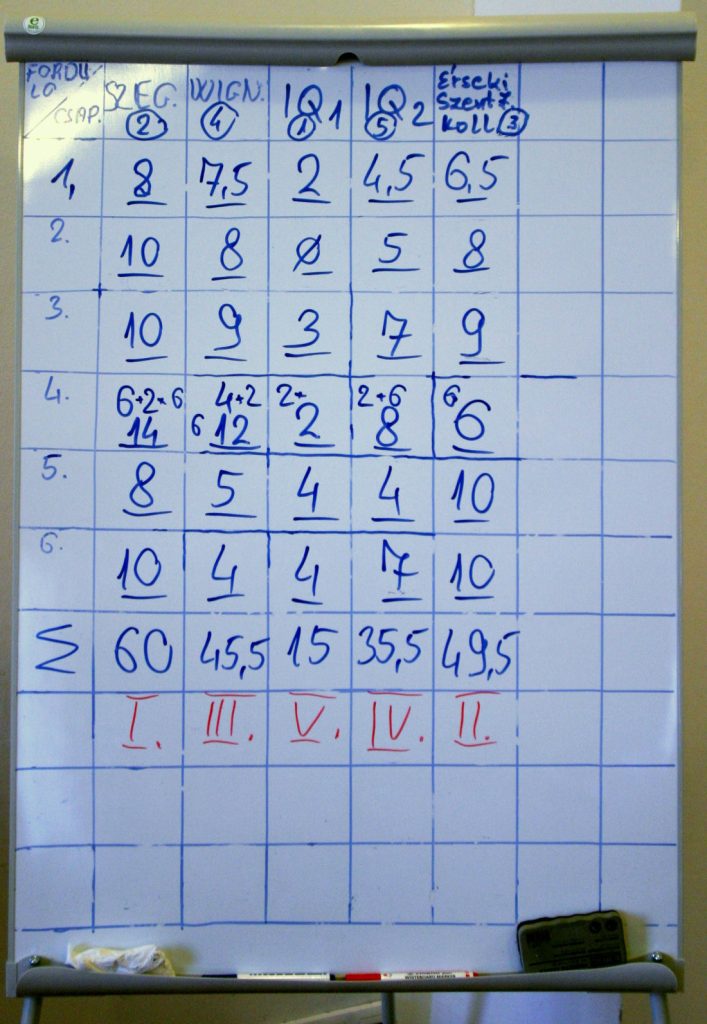 FORDU-
LÓ
CSAP.
SZEG. WIGN. IQ1 IQ2 Érseki
Szent T.
Koll
2 4 1 5 3
1, 8 7,5 2 4,5 6,5
2. 10 8 0 5 8
3. 10 9 3 7 9
4. 6+2+6 4+2 2+ 2+6 6
14 6 12 2 8 6
5. 8 5 4 4 10
6. 10 4 4 7 10
Σ 60 45,5 15 35,5 49,5
I. III. V. IV. II.